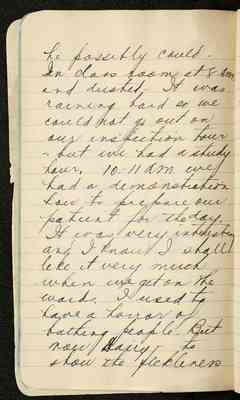 he possibly could.
In class room at 8 am
and dusted. It was
raining hard so we
could not go out on
our inspection tour
- but we had a study
hour, 10-11 a.m we
had a demonstration
how to prepare our
patient for the day.
It was very interesting
and I know I shall
like it very much
when we get on the
ward. I used to
have a horror of
bathing people. But
now to
show the fickleness